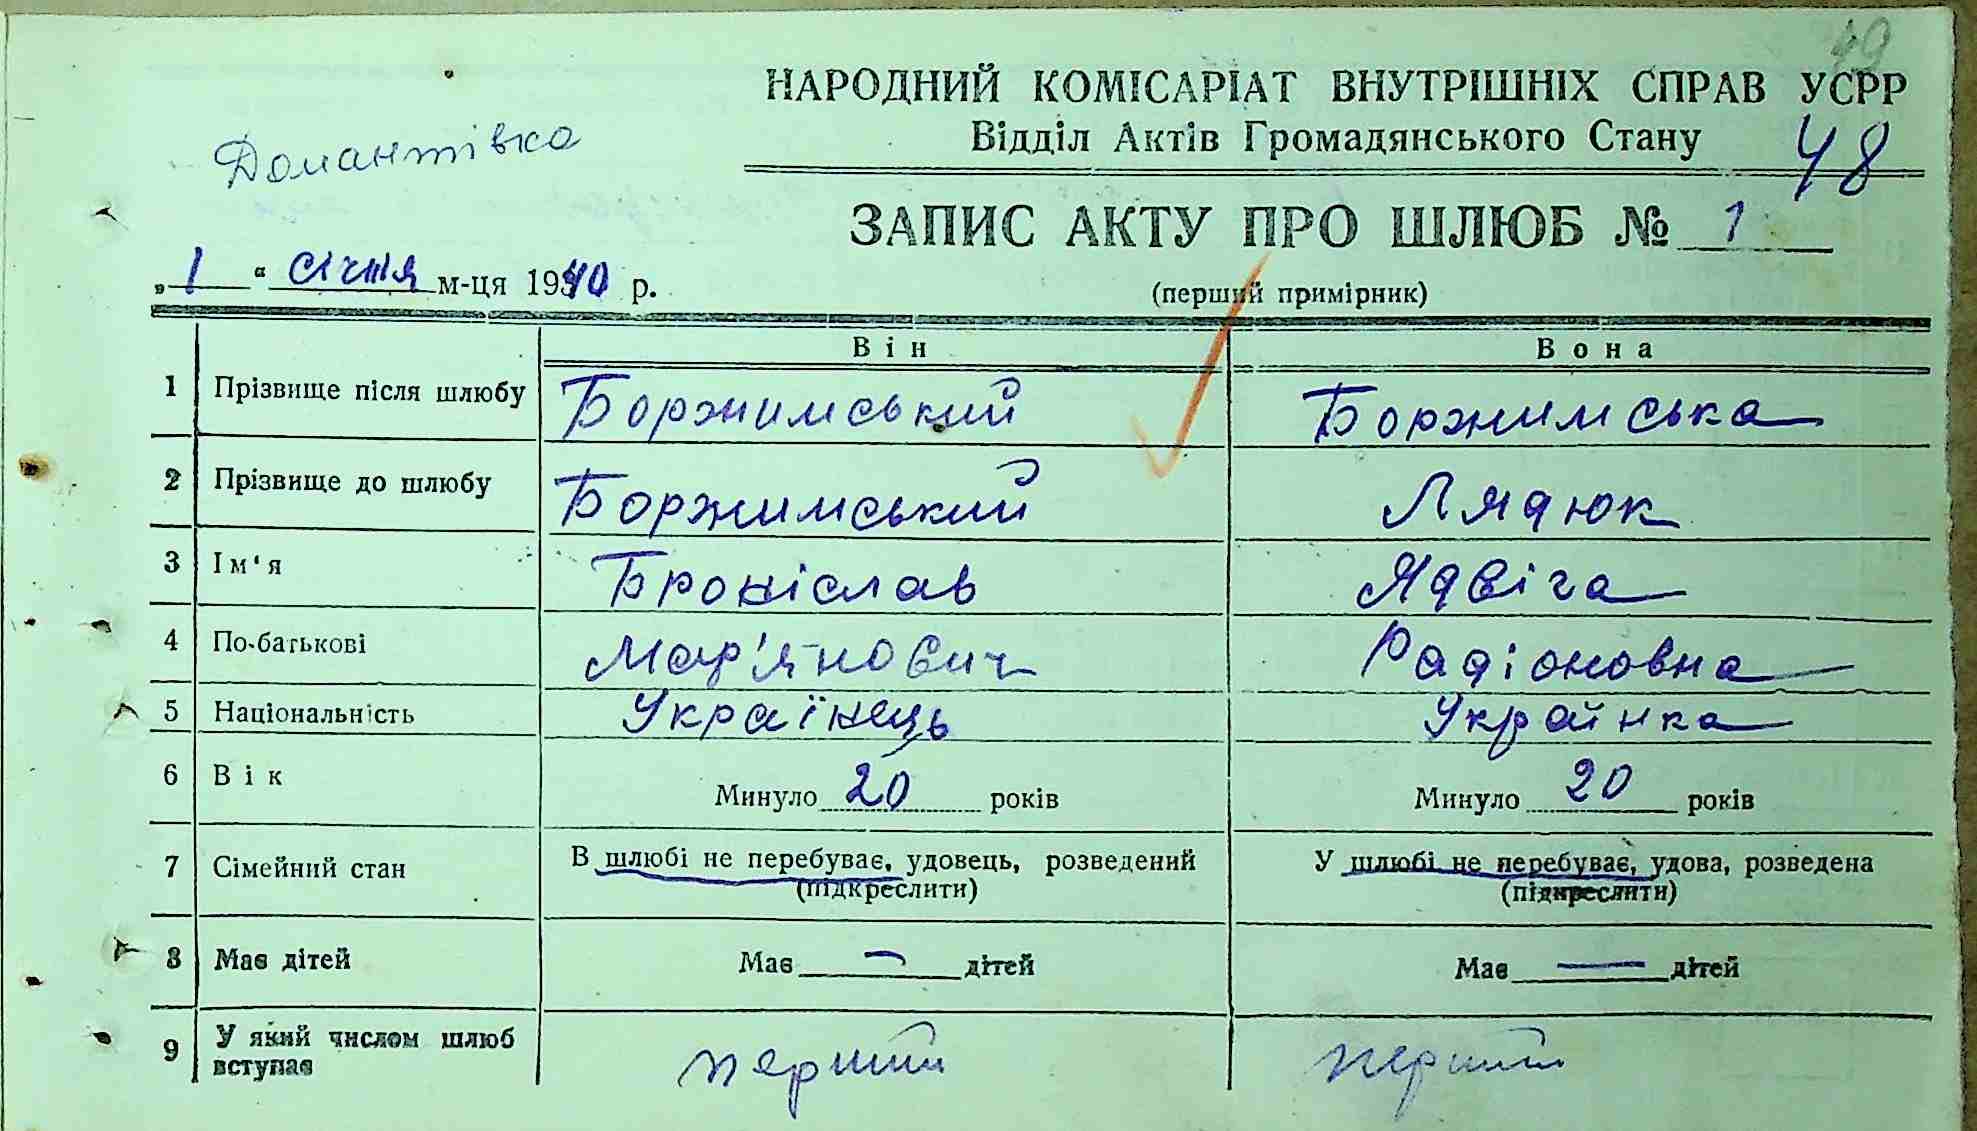 49
НАРОДНИЙ КОМІСАРІАТ ВНУТРІШНІХ СПРАВ УСРР
Відділ Актів Громадянського Стану
48
Домантівка
ЗАПИС АКТУ ПРО ШЛЮБ № 1
„1“ січня м-ця 1940 р.
(перший примірник)
Він Вона
1 Прізвище після шлюбу Боржимський Боржимська
2 Прізвище до шлюбу Боржимський Лядюк
3 Ім'я Броніслав Ядвіга
4 По-батькові Мар'янович Радіоновна
5 Національність Українець Украйнка
6 Вік Минуло 20 років Минуло 20 років
7 Сімейний стан В шлюбі не перебуває, удовець, розведений У шлюбі не перебуває, удова, розведена
(підкреслити) (підкреслити)
8 Має дітей Має — дітей Має — дітей
9 У який числом шлюб вступає перший перший